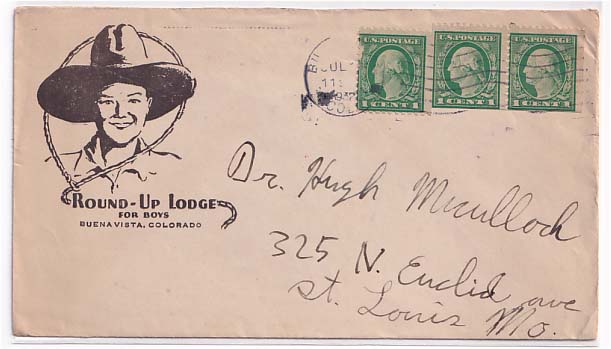 ROUND-UP LODGE
FOR BOYS
BUENA VISTA, COLORADO
U.S. POSTAGE
1 CENT 1
U.S. POSTAGE
1 CENT 1
U.S. POSTAGE
1 CENT 1
JUL
COLO
Dr. Hugh McCulloch
325 N. Euclid ave
St. Louis Mo.